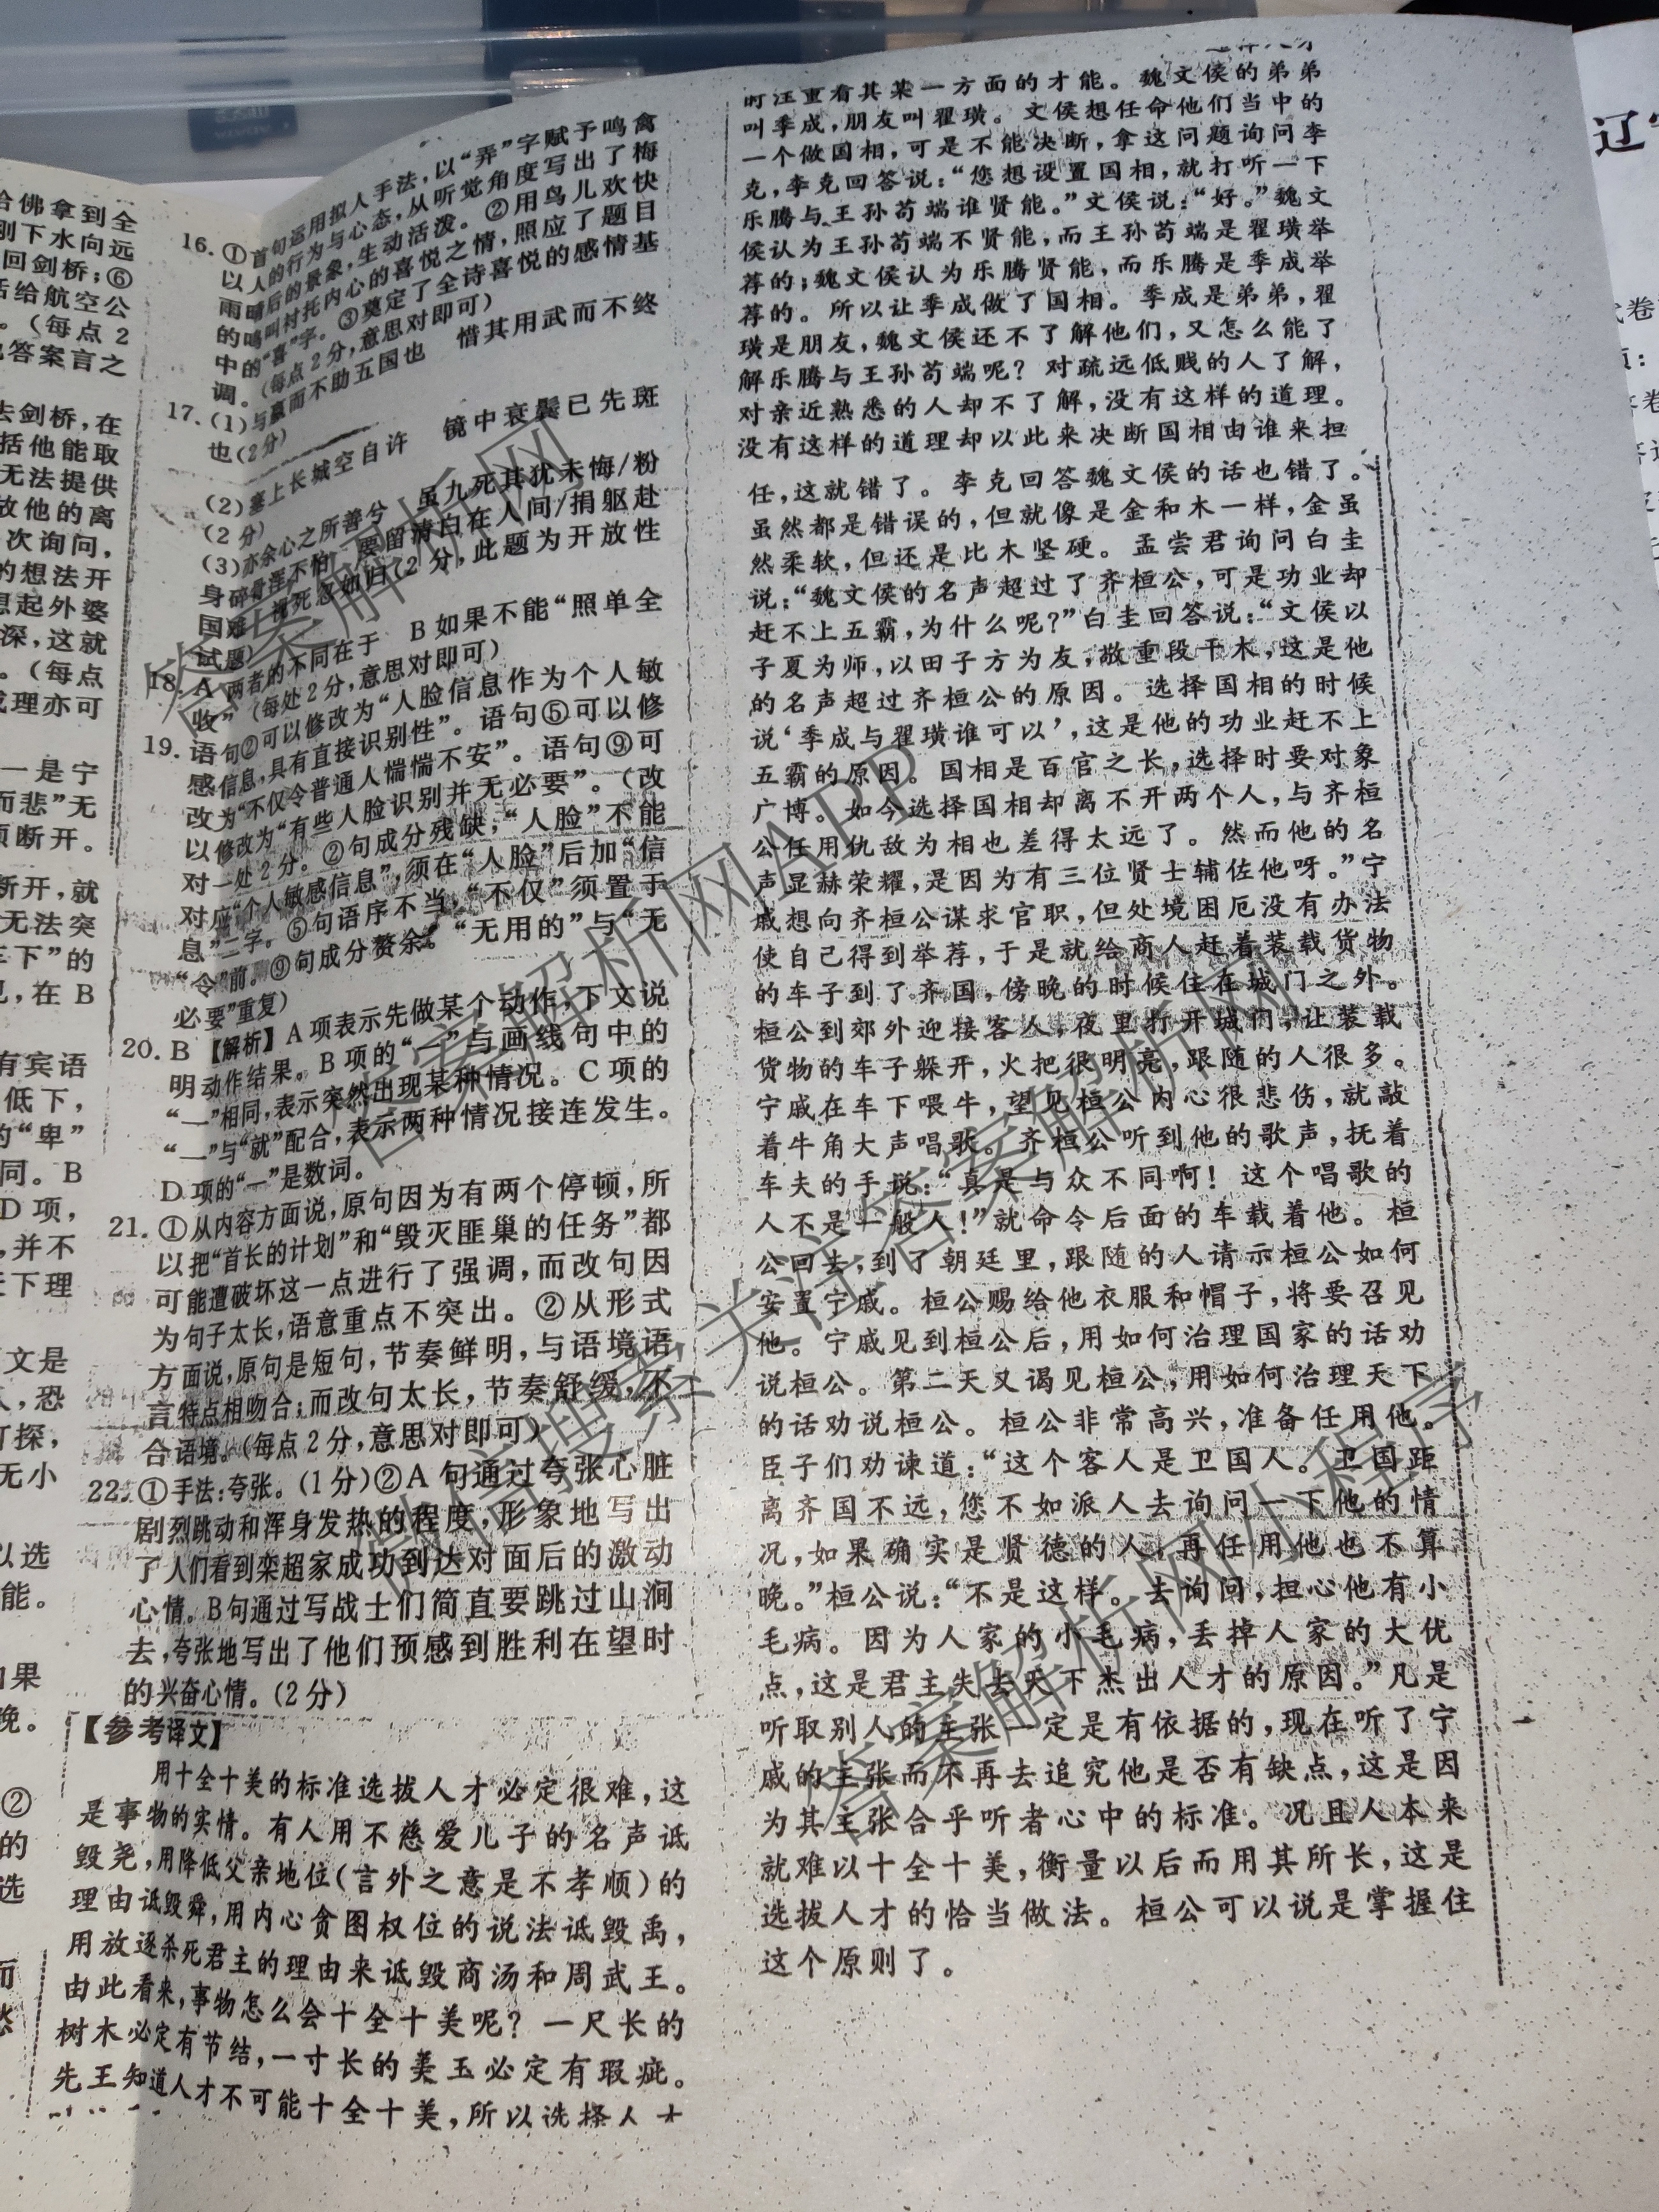 给佛拿到全
则下水向远
回剑桥;⑥
话给航空公
。(每点2
答案言之
去剑桥,在
括他能取
无法提供
放他的离
次询问,
的想法开
想起外婆
深,这就
。(每点
成理亦可
一是宁
而悲”无
须断开。
断开,就
无法突
车下”的
,在B
有宾语
低下,
的“卑”
同。B
D项,
,并不
天下理
文是
,恐
可探,
无小
以选
能。
如果
晚。
②
的
选
16.①首句运用拟人手法,以“弄”字赋予鸣禽
以人的行为与心态,从听觉角度写出了梅
雨晴后的景象,生动活泼。②用鸟儿欢快
的鸣叫衬托内心的喜悦之情,照应了题目
中的“喜”字。③奠定了全诗喜悦的感情基
调。(每点2分,意思对即可)
17.(1)与嬴而不助五国也 惜其用武而不终
也(2分)
(2)塞上长城空自许 镜中衰鬓已先斑
(2分)
(3)亦余心之所善兮 虽九死其犹未悔/粉
身碎骨浑不怕 要留清白在人间/捐躯赴
国难 视死忽如归(2分,此题为开放性
试题)
18.A 两者的不同在于 B如果不能“照单全
收”(每处2分,意思对即可)
19.语句②可以修改为“人脸信息作为个人敏
感信息,具有直接识别性”。语句⑤可以修
改为“不仅令普通人惴惴不安”。语句⑨可
以修改为“有些人脸识别并无必要”。(改
对一处2分。②句成分残缺,“人脸”不能
对应“个人敏感信息”,须在“人脸”后加“信
息”二字。⑤句语序不当,“不仅”须置于
“令”前。⑨句成分赘余。“无用的”与“无
必要”重复)
20.B 【解析】A项表示先做某个动作,下文说
明动作结果。B项的“一”与画线句中的
“一”相同,表示突然出现某种情况。C项的
“一”与“就”配合,表示两种情况接连发生。
D项的“一”是数词。
21.①从内容方面说,原句因为有两个停顿,所
以把“首长的计划”和“毁灭匪巢的任务”都
可能遭破坏这一点进行了强调,而改句因
为句子太长,语意重点不突出。②从形式
方面说,原句是短句,节奏鲜明,与语境语
言特点相吻合;而改句太长,节奏舒缓,不
合语境。(每点2分,意思对即可)
22.①手法:夸张。(1分)②A句通过夸张心脏
剧烈跳动和浑身发热的程度,形象地写出
了人们看到栾超家成功到达对面后的激动
心情。B句通过写战士们简直要跳过山涧
去,夸张地写出了他们预感到胜利在望时
的兴奋心情。(2分)
【参考译文】
用十全十美的标准选拔人才必定很难,这
是事物的实情。有人用不慈爱儿子的名声诋
毁尧,用降低父亲地位(言外之意是不孝顺)的
理由诋毁舜,用内心贪图权位的说法诋毁禹,
用放逐杀死君主的理由来诋毁商汤和周武王。
由此看来,事物怎么会十全十美呢?一尺长的
树木必定有节结,一寸长的美玉必定有瑕疵。
先王知道人才不可能十全十美,所以选择人才
时注重看其某一方面的才能。魏文侯的弟弟
叫季成,朋友叫翟璜。文侯想任命他们当中的
一个做国相,可是不能决断,拿这问题询问李
克,李克回答说:“您想设置国相,就打听一下
乐腾与王孙苟端谁贤能。”文侯说:“好。”魏文
侯认为王孙苟端不贤能,而王孙苟端是翟璜举
荐的;魏文侯认为乐腾贤能,而乐腾是季成举
荐的。所以让季成做了国相。季成是弟弟,翟
璜是朋友,魏文侯还不了解他们,又怎么能了
解乐腾与王孙苟端呢?对疏远低贱的人了解,
对亲近熟悉的人却不了解,没有这样的道理。
没有这样的道理却以此来决断国相由谁来担
任,这就错了。李克回答魏文侯的话也错了。
虽然都是错误的,但就像是金和木一样,金虽
然柔软,但还是比木坚硬。孟尝君询问白圭
说:“魏文侯的名声超过了齐桓公,可是功业却
赶不上五霸,为什么呢?”白圭回答说:“文侯以
子夏为师,以田子方为友,敬重段干木,这是他
的名声超过齐桓公的原因。选择国相的时候
说‘季成与翟璜谁可以’,这是他的功业赶不上
五霸的原因。国相是百官之长,选择时要对象
广博。如今选择国相却离不开两个人,与齐桓
公任用仇敌为相也差得太远了。然而他的名
声显赫荣耀,是因为有三位贤士辅佐他呀。”宁
戚想向齐桓公谋求官职,但处境困厄没有办法
使自己得到举荐,于是就给商人赶着装载货物
的车子到了齐国,傍晚的时候住在城门之外。
桓公到郊外迎接客人,夜里打开城门,让装载
货物的车子躲开,火把很明亮,跟随的人很多。
宁戚在车下喂牛,望见桓公内心很悲伤,就敲
着牛角大声唱歌。齐桓公听到他的歌声,抚着
车夫的手说:“真是与众不同啊!这个唱歌的
人不是一般人!”就命令后面的车载着他。桓
公回去,到了朝廷里,跟随的人请示桓公如何
安置宁戚。桓公赐给他衣服和帽子,将要召见
他。宁戚见到桓公后,用如何治理国家的话劝
说桓公。第二天又谒见桓公,用如何治理天下
的话劝说桓公。桓公非常高兴,准备任用他。
臣子们劝谏道:“这个客人是卫国人。卫国距
离齐国不远,您不如派人去询问一下他的情
况,如果确实是贤德的人,再任用他也不算
晚。”桓公说:“不是这样。去询问,担心他有小
毛病。因为人家的小毛病,丢掉人家的大优
点,这是君主失去天下杰出人才的原因。”凡是
听取别人的主张一定是有依据的,现在听了宁
戚的主张而不再去追究他是否有缺点,这是因
为其主张合乎听者心中的标准。况且人本来
就难以十全十美,衡量以后而用其所长,这是
选拔人才的恰当做法。桓公可以说是掌握住
这个原则了。
答案解析网
答案解析网APP
微信搜索关注答案解析网
答案解析网小程序
辽
试卷